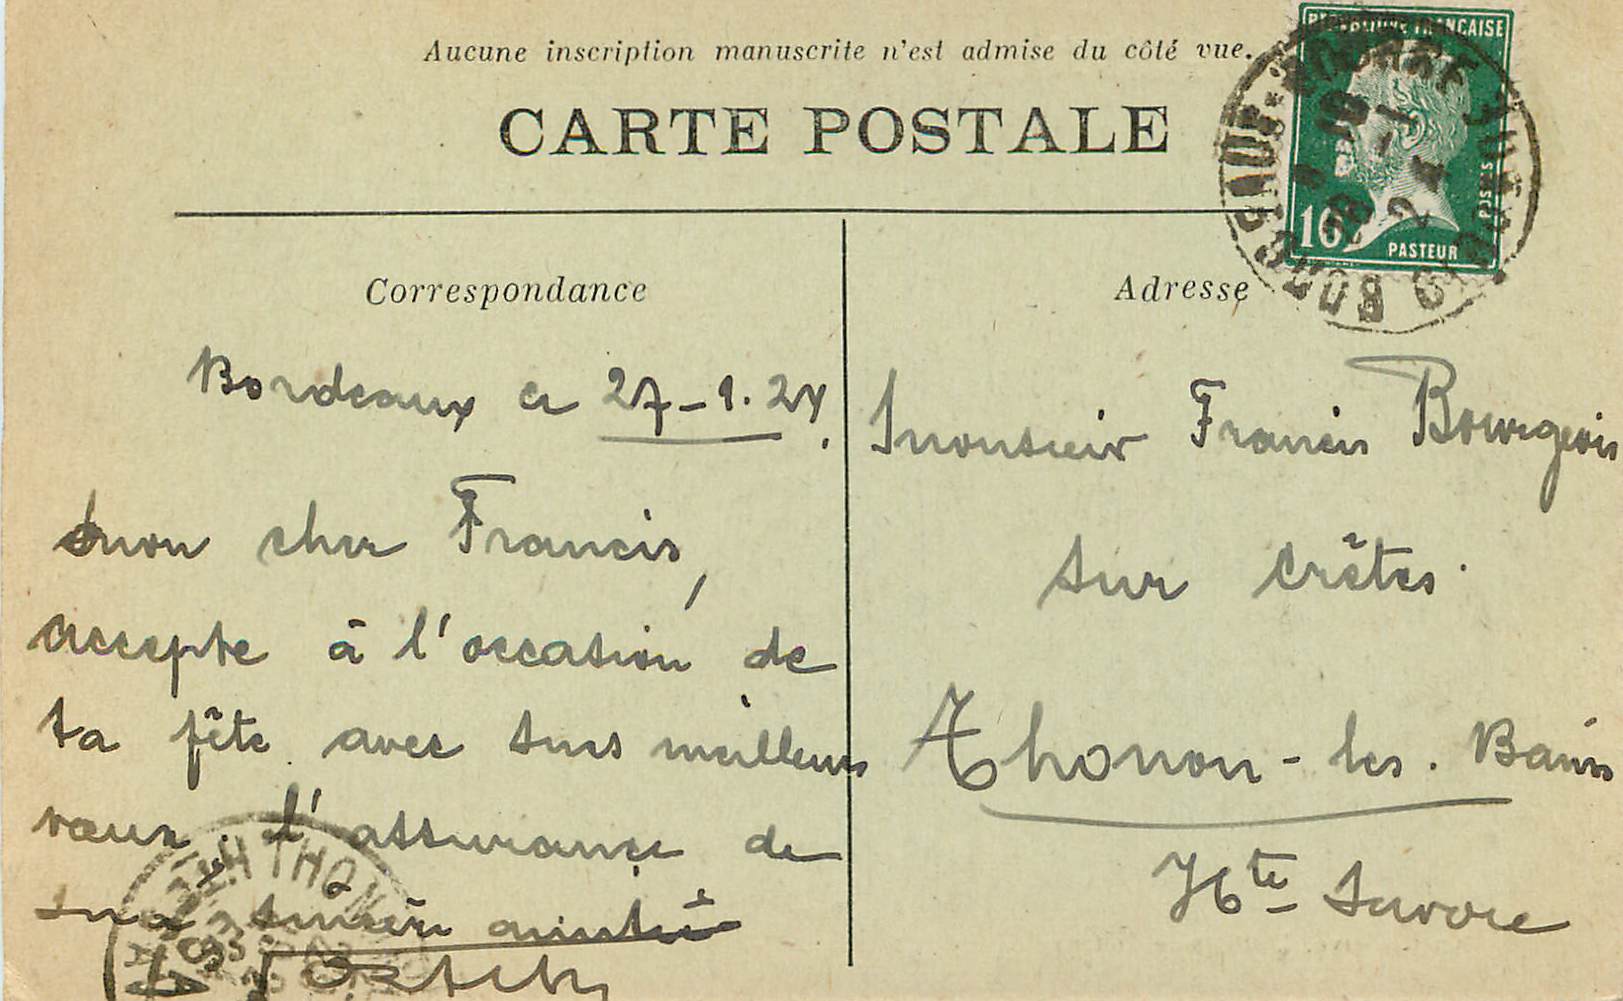 Aucune inscription manuscrite n'est admise du côté vue.
CARTE POSTALE
RÉPUBLIQUE FRANÇAISE
POSTES
10c
PASTEUR
Correspondance
Bordeaux a 27-1.24.
mon cher Francis,
accepte à l'occasion de
ta fête avec mes meilleurs
vœux, l'assurance de
ma sincère amitié
Adresse
Monsieur Francis Bourgeois
sur crêtes.
Thonon-les-Bains
Hte Savoie